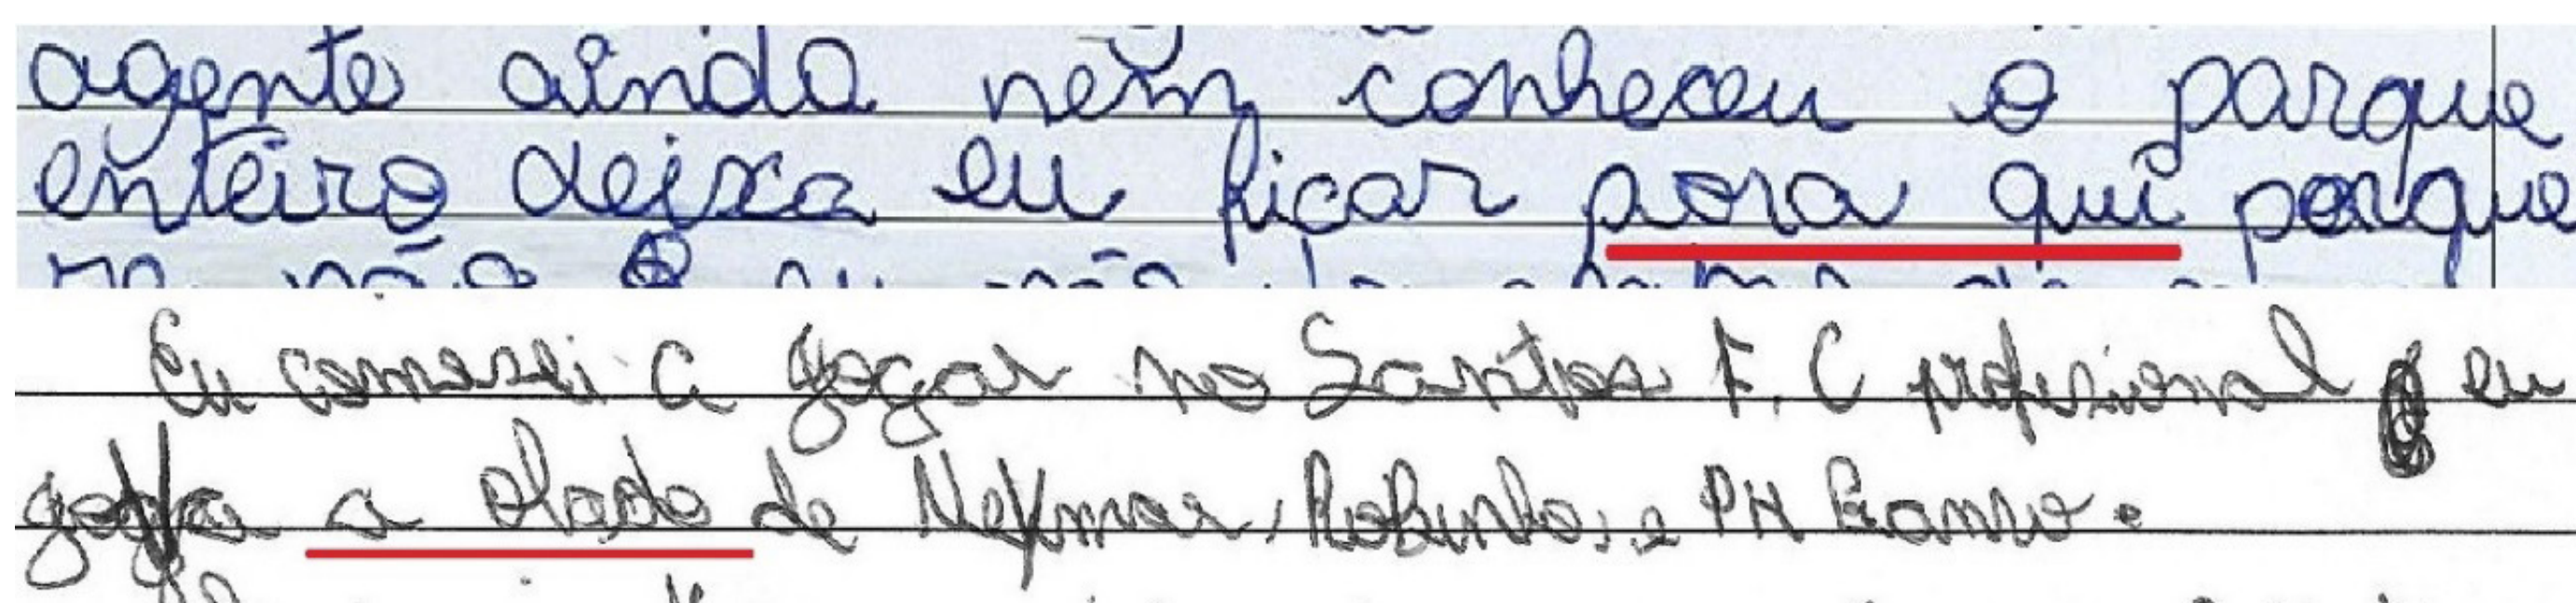 agente ainda nem conheceu o parque
enteiro deixa eu ficar para qui porque
Eu comessei a gogar no Santos F.C profesional eu
gogava a olado de Neymar, Robinho, e PH Ganso.